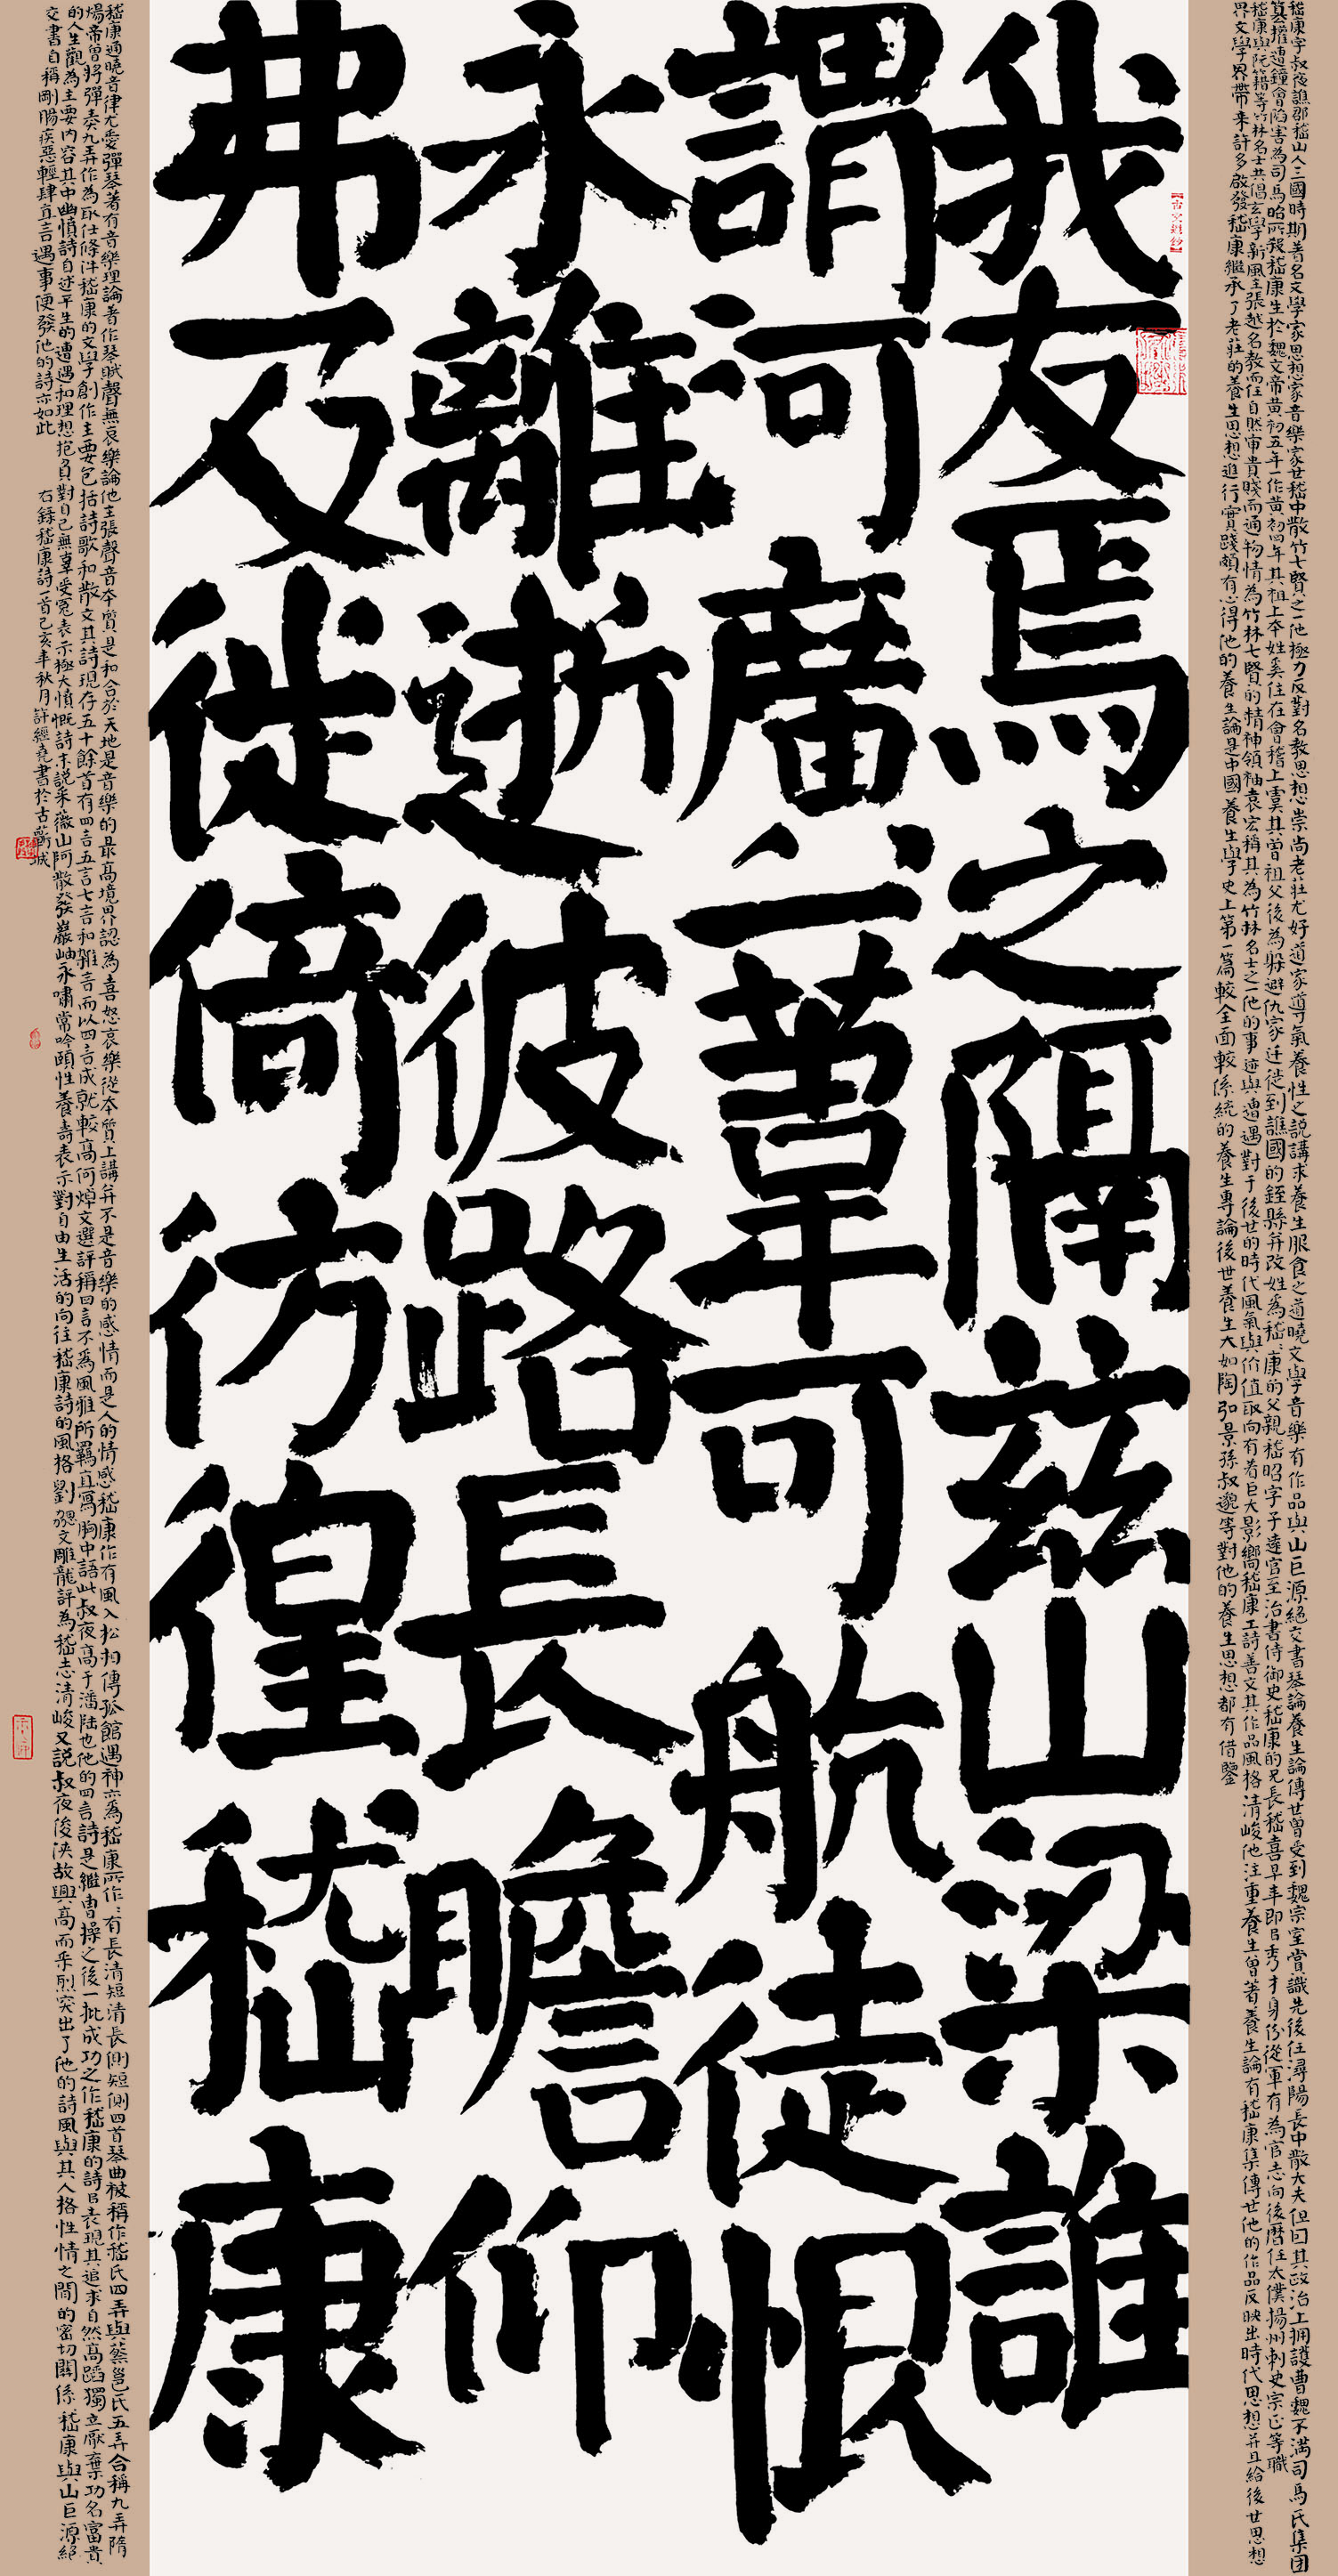 嵇康字叔夜譙郡嵇山人三國時期著名文學家思想家音樂家世嵇中散竹七賢之一他極力反對名教思想崇尚老莊尤好道家導氣養性之説講求養生服食之道曉文學音樂有作品與山巨源絕交書琴論養生論傳世曾受到魏宗室賞識先後任潯陽長中散大夫但因其政治上拥護曹魏不满司馬氏集团
其權遭鐘會陷害為司馬昭所殺嵇康生於魏文帝黄初五年一作黄初四年其祖上本姓奚住在會稽上虞其曾祖父後為躲避仇家迁徙到譙國的銍縣并改姓為嵇康的父親嵇昭字子遠官至治書侍御史嵇康的兄長嵇喜早年即以秀才身份從軍有為官志向後曆任太僕揚州刺史宗正等職
嵇康與阮籍等竹林名士共倡玄學新風主張越名教而任自然审貴賤而通物情為竹林七賢的精神領袖袁宏稱其為竹林名士之一他的事迹與遭遇對于後世的時代風氣與价值取向有着巨大影嚮嵇康工詩善文其作品風格清峻他注重養生曾著養生論有嵇康集傳世他的作品反映出時代思想并且給後世思想
界文學界帶来許多啟發嵇康繼承了老莊的養生思想進行實踐頗有心得他的養生論是中國養生學史上第一篇較全面較係統的養生專論後世養生大如陶弘景孫叔邈等對他的養生思想都有借鑒
我友焉之隔茲山梁誰
謂河廣一葦可航徒恨
永離逝彼路長瞻仰
弗及徙倚彷徨嵇康
嵇康通曉音律尤愛彈琴著有音樂理論著作琴賦聲無哀樂論他主張聲音本質是和合於天地是音樂的最高境界認為喜怒哀樂從本質上講并不是音樂的感情而是人的情感嵇康作有風入松相傳孤館遇神亦為嵇康所作有長清短清長側短側四首琴曲被稱作嵇氏四弄與蔡邕氏五弄合稱九弄隋
煬帝曾將彈奏九弄作為取仕條件嵇康的文學創作主要包括詩歌和散文其詩現存五十餘首有四言五言七言和雜言而以四言成就較高何焯文選評稱四言不為風雅所羈直寫胸中語此叔夜高于潘陸也他的四言詩是繼曹操之後一批成功之作嵇康的詩以表現其追求自然高蹈獨立厭棄功名富貴
的人生觀為主要内容其中幽憤詩自述平生的遭遇和理想抱負對自己無辜受冤表示極大憤慨詩末説采薇山阿散發巖岫永嘯常吟頤性養壽表示對自由生活的向往嵇康詩的風格劉勰文雕龍評為嵇志清峻又説叔夜俊俠故興高而采烈突出了他的詩風與其人格性情之間的密切關係嵇康與山巨源絕
交書自稱剛腸疾惡輕肆直言遇事便發他的詩亦如此
右錄嵇康詩一首己亥年秋月許經堯書於古蘄城